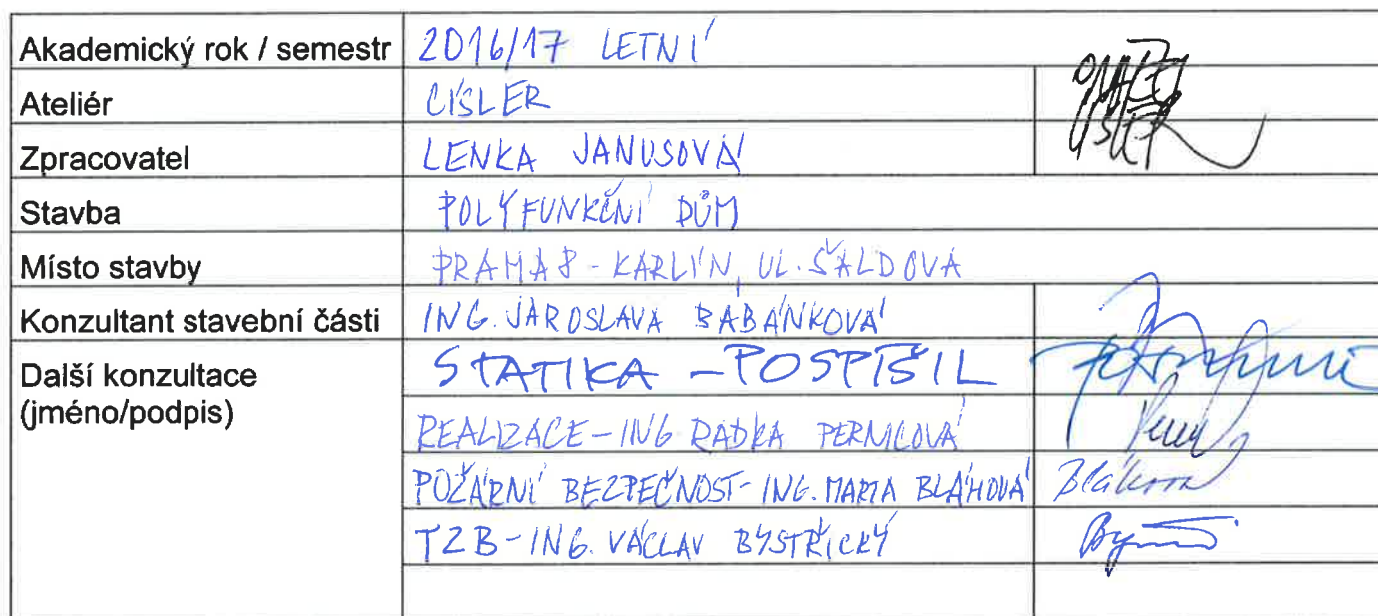 Akademický rok / semestr 2016/17 LETNÍ
Ateliér CÍSLER
Zpracovatel LENKA JANUSOVÁ
Stavba POLYFUNKČNÍ DŮM
Místo stavby PRAHA 8 - KARLÍN, UL. ŠALDOVA
Konzultant stavební části ING. JAROSLAVA BABÁNKOVÁ
Další konzultace STATIKA - POSPÍŠIL
(jméno/podpis)
REALIZACE - ING RADKA PERNICOVÁ
POŽÁRNÍ BEZPEČNOST - ING. MARTA BLÁHOVÁ Bláhová
TZB - ING. VÁCLAV BYSTŘICKÝ